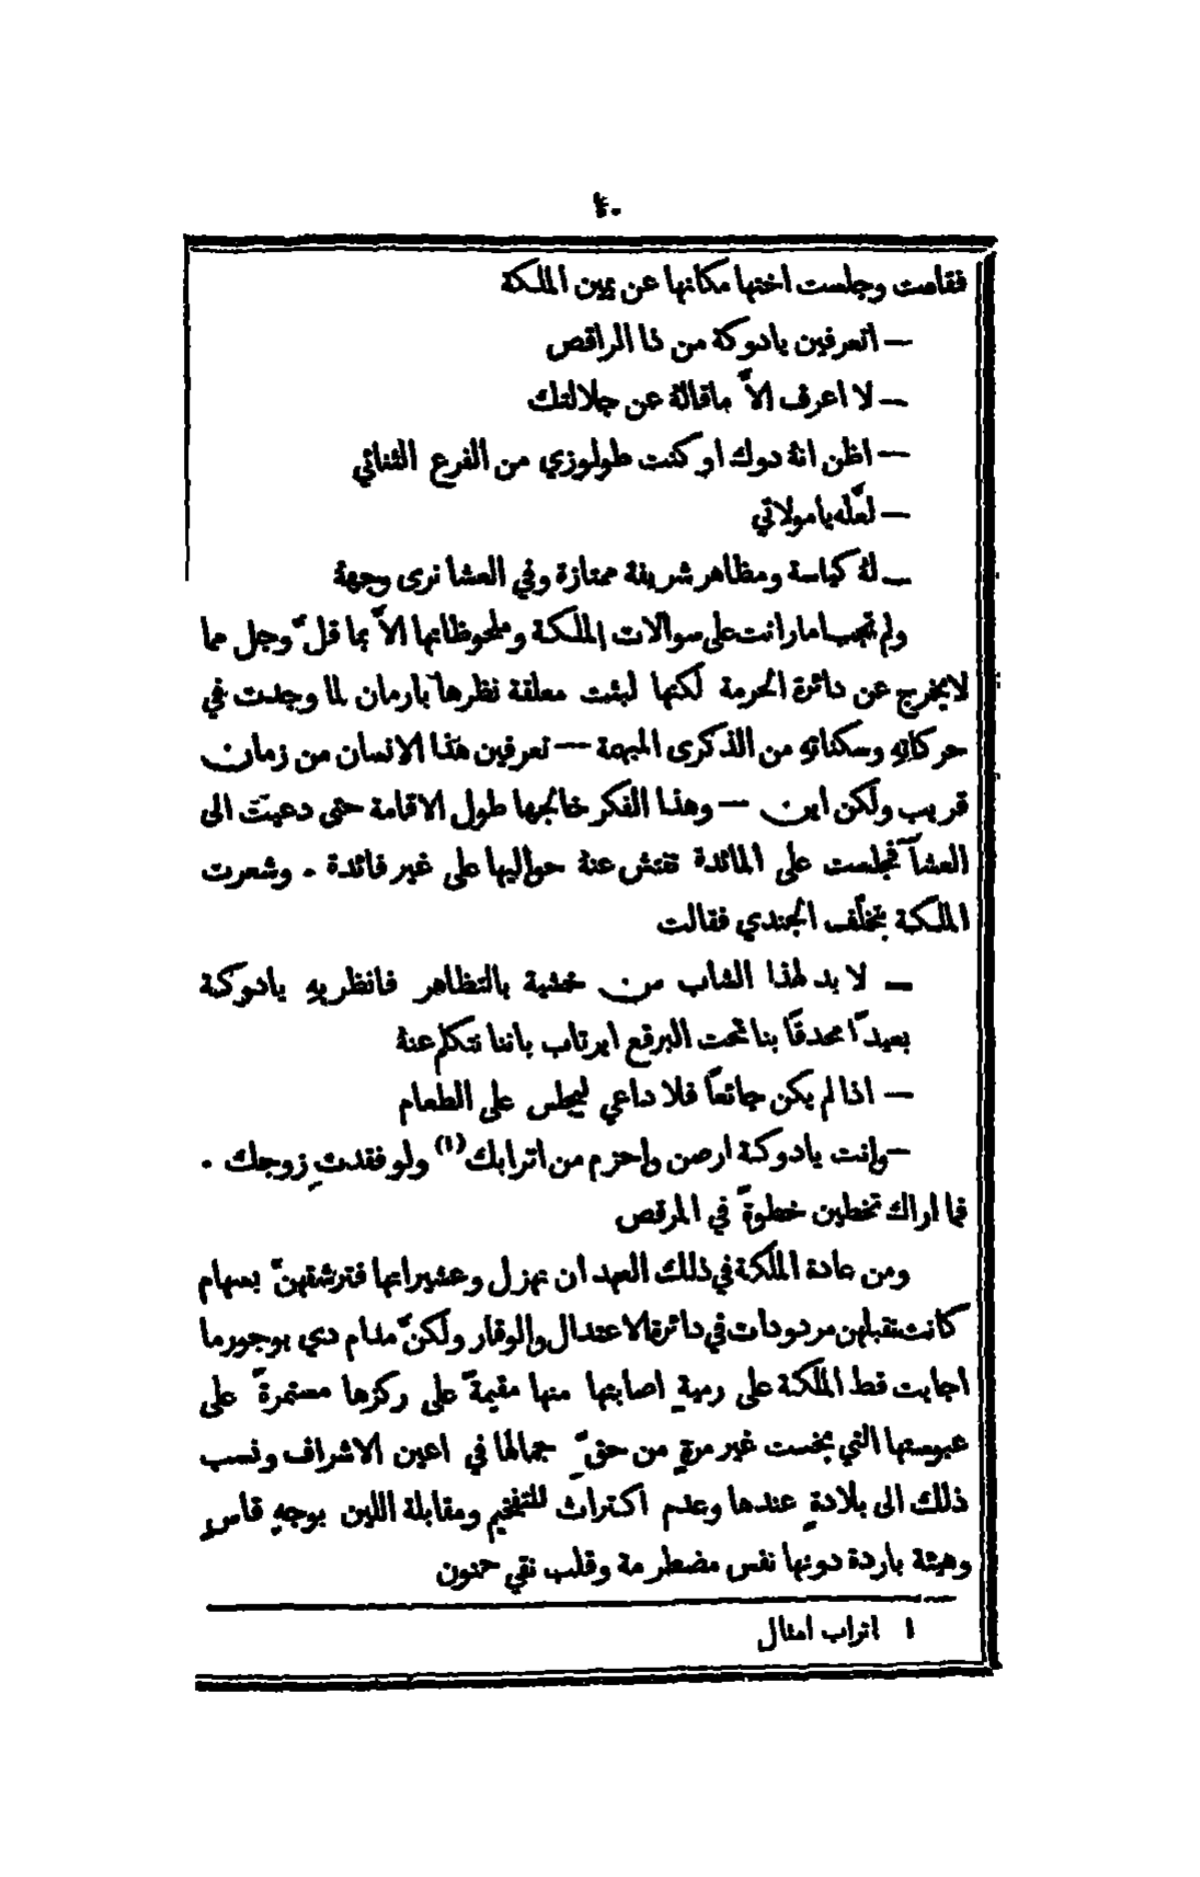 ٤٠
فقامت وجلست اختها مكانها عن يمين الملكة
— اتعرفين يادوكة من ذا الراقص
— لا اعرف الاّ ماقالهُ عن جلالتك
— اظن انهُ دوك او كنت طولوزي من الفرع الثنائي
— لعّله يا مولاتي
— لهُ كياسة ومظاهر شريفة ممتازة وفي العشا نرى وجههُ
ولم تجب امارانت على سوالات الملكة وملحوظاتها الاّ بما قلّ وجل مما
لا يخرج عن دائرة الحرمة لكنها لبثت معلقة نظرها بارمان لما وجدت في
حركاتهِ وسكناتهِ من الذكرى المبهمة — تعرفين هذا الانسان من زمان
قريب ولكن اين — وهذا الفكر خالجها طول الاقامة حتى دعيت الى
العشآ فجلست على المائدة تفتش عنهُ حواليها على غير فائدة . وشعرت
الملكة بتخلّف الجندي فقالت
— لا بد لهذا الشاب من خشية بالتظاهر فانظريهِ يادوكة
بعيدًا محدقًا بنا تحت البرقع ايرتاب باننا نتكلم عنهُ
— اذا لم يكن جائعاً فلا داعي ليجلس على الطعام
— وانت يادوكة ارصن واحزم من اترابك (١) ولو فقدتِ زوجك .
فما اراك تخطين خطوةً في المرقص
ومن عادة الملكة في ذلك العهد ان تهزل وعشيراتها فترشقهنّ بسهام
كانت تقبلهن مردودات في دائرة الاعتدال والوقار ولكنّ مدام دي بوجور ما
اجابت قط الملكة على رميةٍ اصابتها منها مقيمةً على ركزها مستمرةً على
عبوستها التي بخست غير مرةٍ من حقّ جمالها في اعين الاشراف ونسب
ذلك الى بلادةٍ عندها وعدم اكتراث للتفخيم ومقابلة اللين بوجهٍ قاسٍ
وهيئة باردة دونها نفس مضطرمة وقلب نقي حنون
١ اتراب امثال